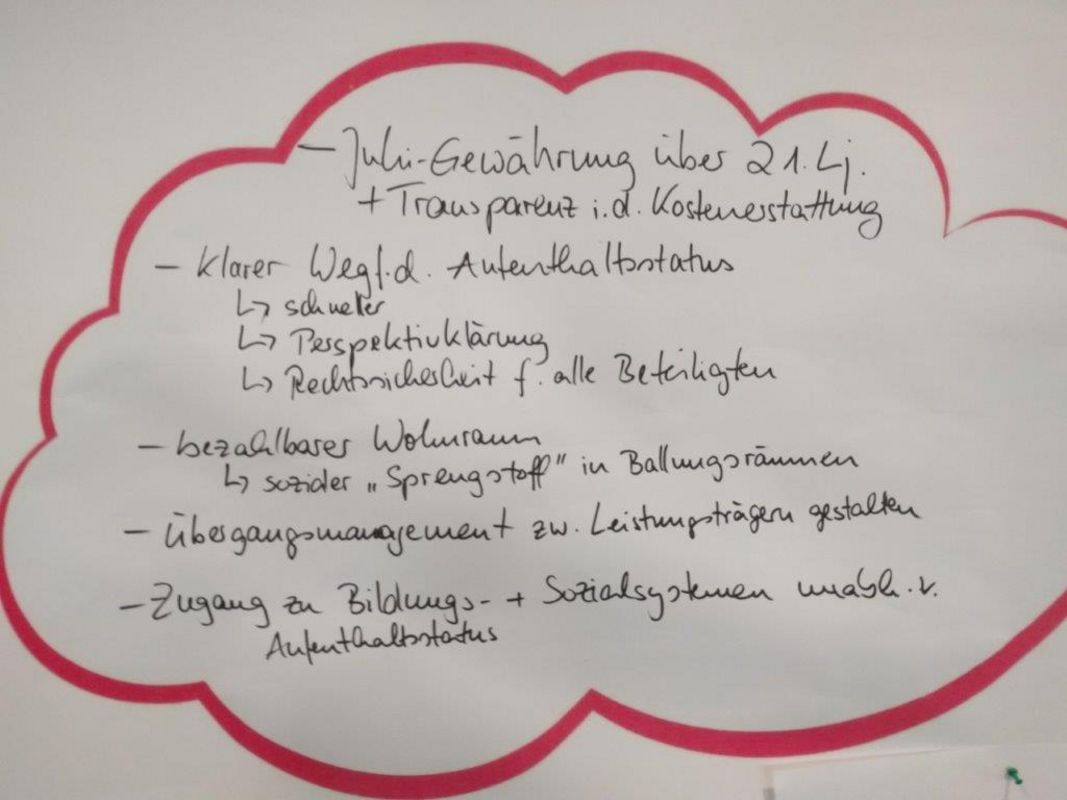 – Juhi-Gewährung über 21. Lj.
+ Transparenz i.d. Kostenerstattung
– klarer Weg f.d. Aufenthaltsstatus
↳ schneller
↳ Perspektivklärung
↳ Rechtssicherheit f. alle Beteiligten
– bezahlbarer Wohnraum
↳ sozialer „Sprengstoff" in Ballungsräumen
– Übergangsmanagement zw. Leistungsträgern gestalten
– Zugang zu Bildungs- + Sozialsystemen unabh. v.
Aufenthaltsstatus